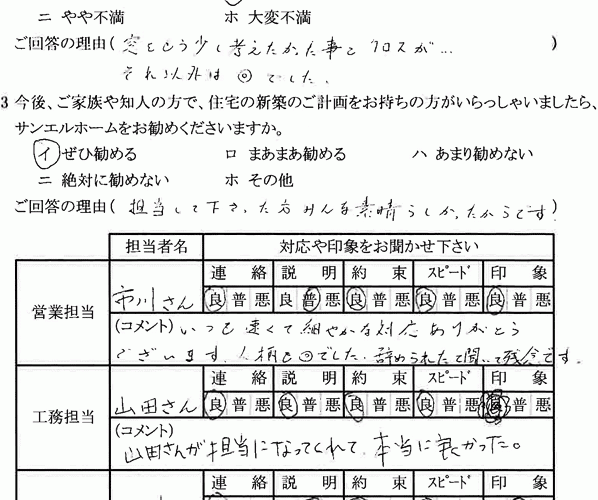 ニ やや不満 ホ 大変不満
ご回答の理由( 窓をもう少し考えたかった事とクロスが… )
それ以外は◎でした。
3 今後、ご家族や知人の方で、住宅の新築のご計画をお持ちの方がいらっしゃいましたら、
サンエルホームをお勧めくださいますか。
イ ぜひ勧める ロ まあまあ勧める ハ あまり勧めない
ニ 絶対に勧めない ホ その他
ご回答の理由( 担当して下さった方みんな素晴らしかったからです )
担当者名 対応や印象をお聞かせ下さい
連絡 説明 約束 スピード 印象
営業担当 市川さん 良 普 悪 良 普 悪 良 普 悪 良 普 悪 良 普 悪
(コメント) いつも速くて細やかな対応ありがとう
ございます。人柄も◎でした。辞められたと聞いて残念です。
連絡 説明 約束 スピード 印象
工務担当 山田さん 良 普 悪 良 普 悪 良 普 悪 良 普 悪 良 普 悪
(コメント)
山田さんが担当になってくれて、本当に良かった。